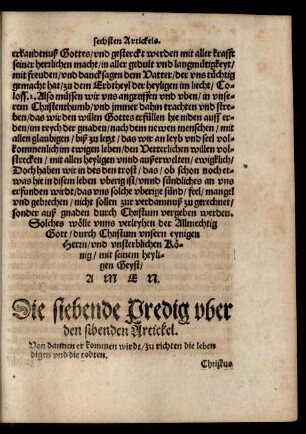 sechsten Artickels.
erkandtnuß Gottes/vnd gesterckt werden mit aller krafft
seiner herzlichen macht/in aller gedult vnd langmütigkeyt/
mit freuden/vnd dancksagen dem Vatter/der vns tüchtig
gemacht hat/zu dem Erbtheyl der heyligen im liecht/Co-
loss.1. Also müssen wir vns angreyffen vnd vben/in vnse-
rem Christenthumb/vnd jmmer dahin trachten vnd stre-
ben/das wir den willen Gottes erfüllen hie niden auff er-
den/im reych der gnaden/nach dem newen menschen/mit
allen glaubigen/biß zu letzt/das wir an leyb vnd seel vol-
kommenlich im ewigen leben/den Vetterlichen willen vol-
strecken/mit allen heyligen vnnd außerwelten/ewigklich/
Doch haben wir in des den trost/das/ob schon noch et-
was hie in disem leben vberig ist/vnnd sündliches an vns
erfunden wirdt/das vns solche vberige sünd/feel/mangel
vnd gebrechen/nicht sollen zur verdamnuß zu gerechnet/
sonder auß gnaden durch Christum vergeben werden.
Solches wölle vnns verleyhen der Allmechtig
Gott/durch Christum vnsern eynigen
Herrn/vnd vnsterblichen Kö-
nig/mit seinem heyli-
gen Geyst/
A M E N.
Die siebende Predig vber
den sibenden Artickel.
Von dannen er kommen wirdt/zu richten die leben
digen vnd die todten.
Christus